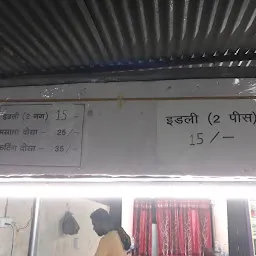 इडली (2 नग) 15 -
मसाला दोसा - 25 /-
कटिंग दोसा - 35 /-
इडली (2 पीस)
15 /-